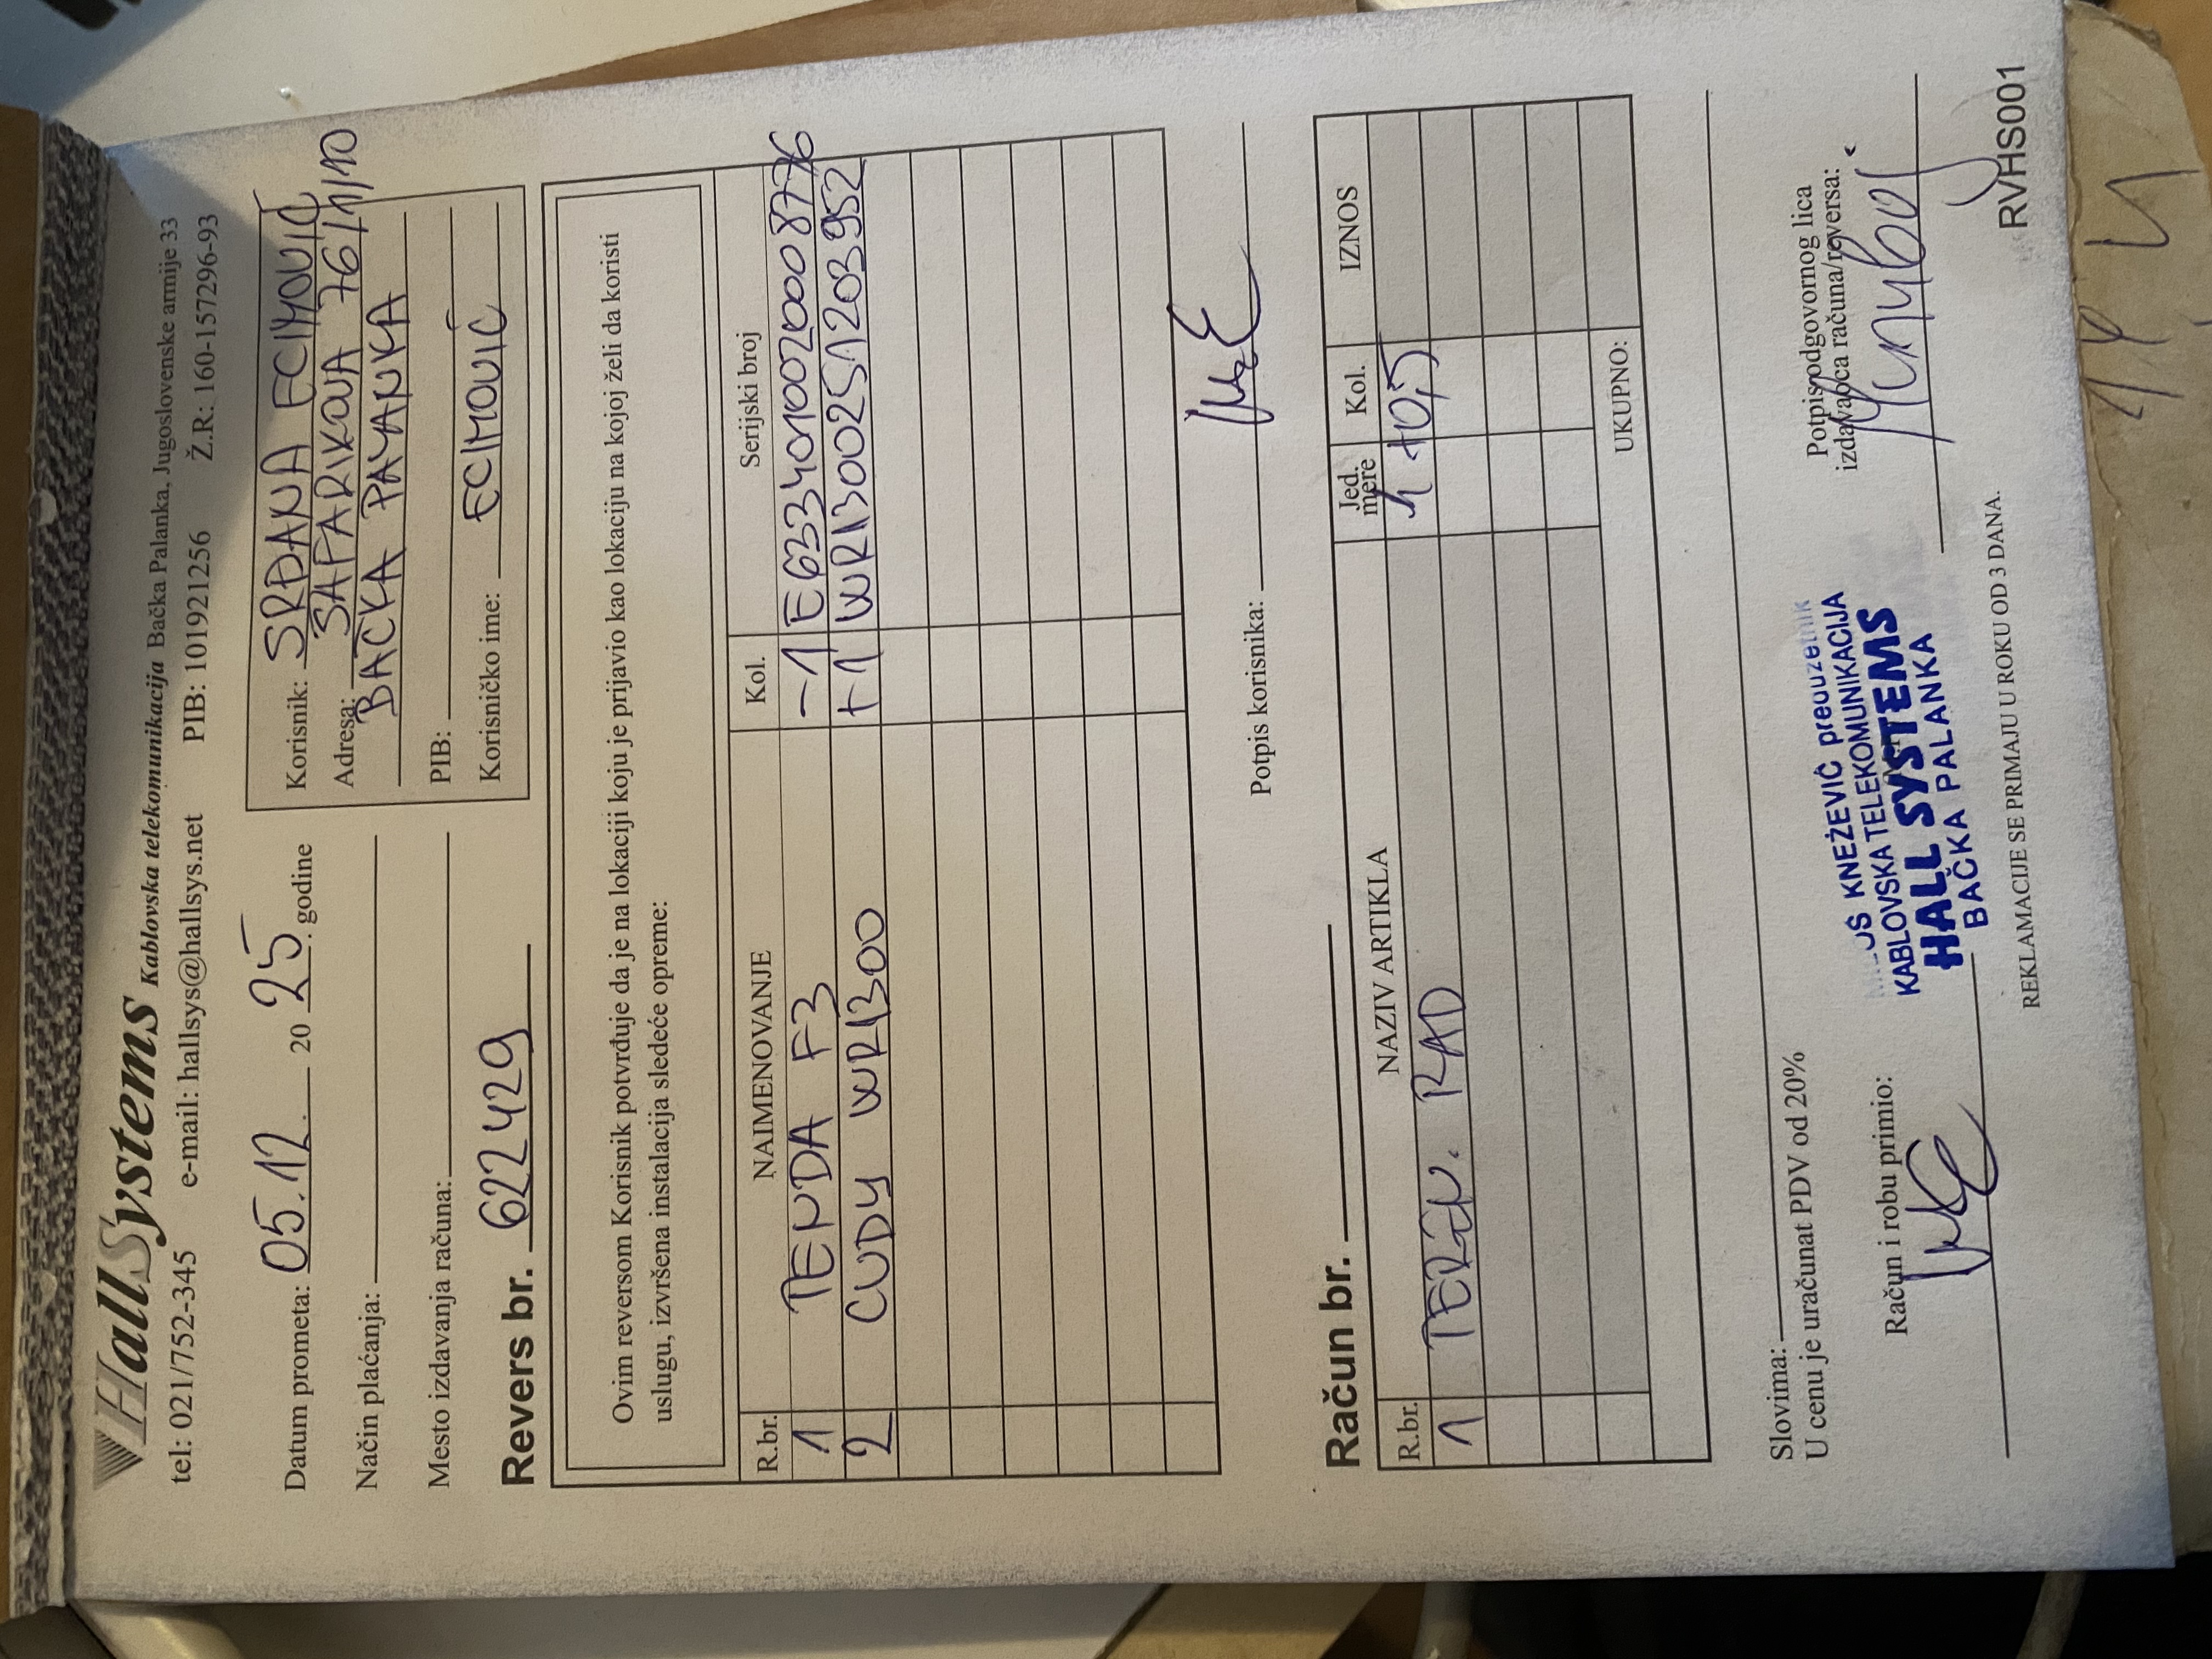 HallSystems Kablovska telekomunikacija Bačka Palanka, Jugoslovenske armije 33
tel: 021/752-345 e-mail: hallsys@hallsys.net PIB: 101921256 Ž.R: 160-157296-93
Datum prometa: 05.12. 20 25. godine
Način plaćanja:
Mesto izdavanja računa:
Korisnik: SRĐANA EĆIMOVIĆ
Adresa: ŠAFARIKOVA 76/11/10
BAČKA PALANKA
PIB:
Korisničko ime: ECIMOVIĆ
Revers br. 622429
Ovim reversom Korisnik potvrđuje da je na lokaciji koju je prijavio kao lokaciju na kojoj želi da koristi
uslugu, izvršena instalacija sledeće opreme:
R.br. NAIMENOVANJE Kol. Serijski broj
1 TENDA F3 -1 E6334010020008776
2 CUDY WR1300 +1 WR1300251203952
Potpis korisnika:
Račun br.
R.br. NAZIV ARTIKLA Jed. mere Kol. IZNOS
1 TEREN. RAD h +0,5
UKUPNO:
Slovima:
U cenu je uračunat PDV od 20%
Račun i robu primio:
KNEŽEVIĆ preduzetnik
KABLOVSKA TELEKOMUNIKACIJA
HALL SYSTEMS
BAČKA PALANKA
Potpis odgovornog lica
izdavaoca računa/reversa:
REKLAMACIJE SE PRIMAJU U ROKU OD 3 DANA.
RVHS001